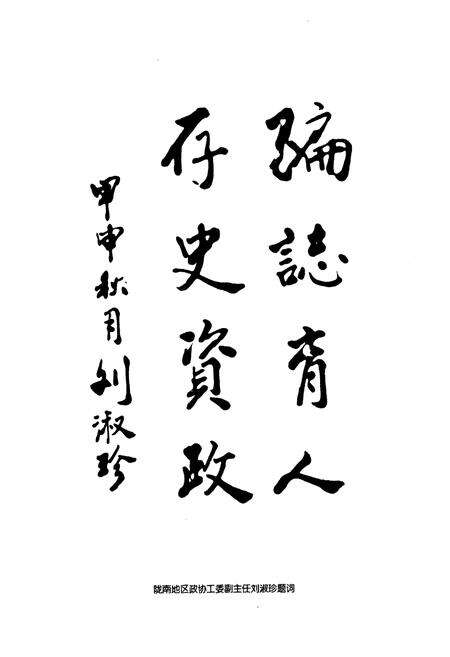 編誌育人
存史資政
甲申秋月刘淑珍
陇南地区政协工委副主任刘淑珍题词